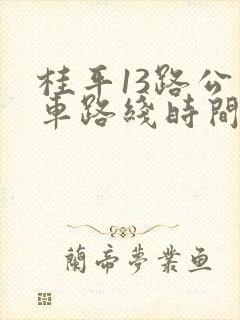 桂平13路公
車路綫時間
蘭帝夢業鱼